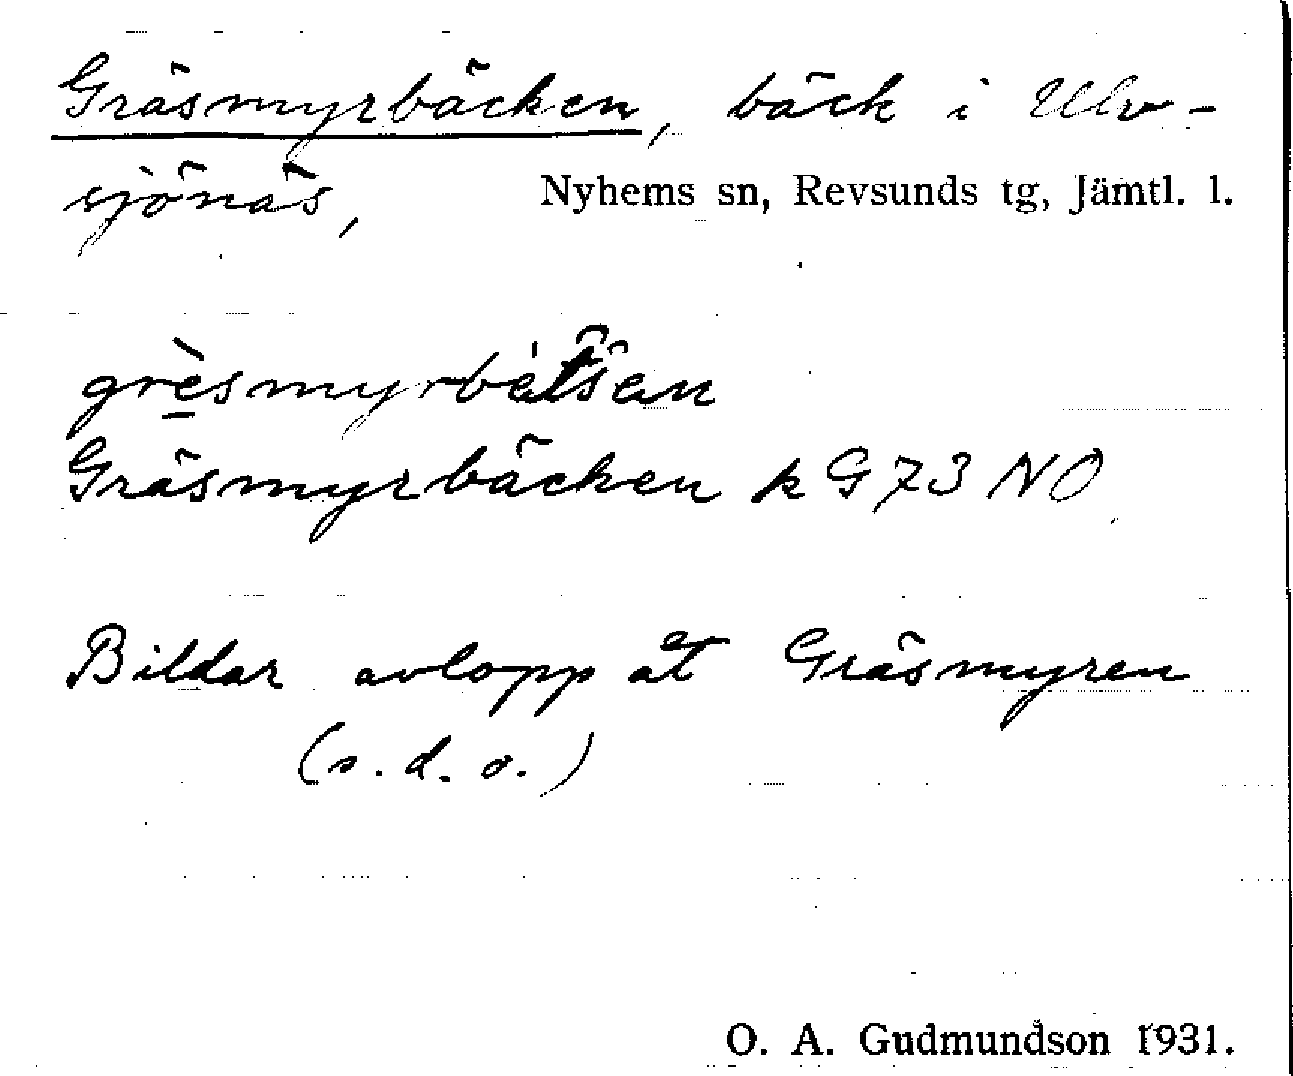 Gräsmyrbäcken, bäck i Ulv-
sjönäs, Nyhems sn, Revsunds tg, Jämtl. l.
Gräsmyrbäcken k G 73 NO
Bildar avlopp åt Gräsmyren
(s. d. o.)
O. A. Gudmundson 1931.